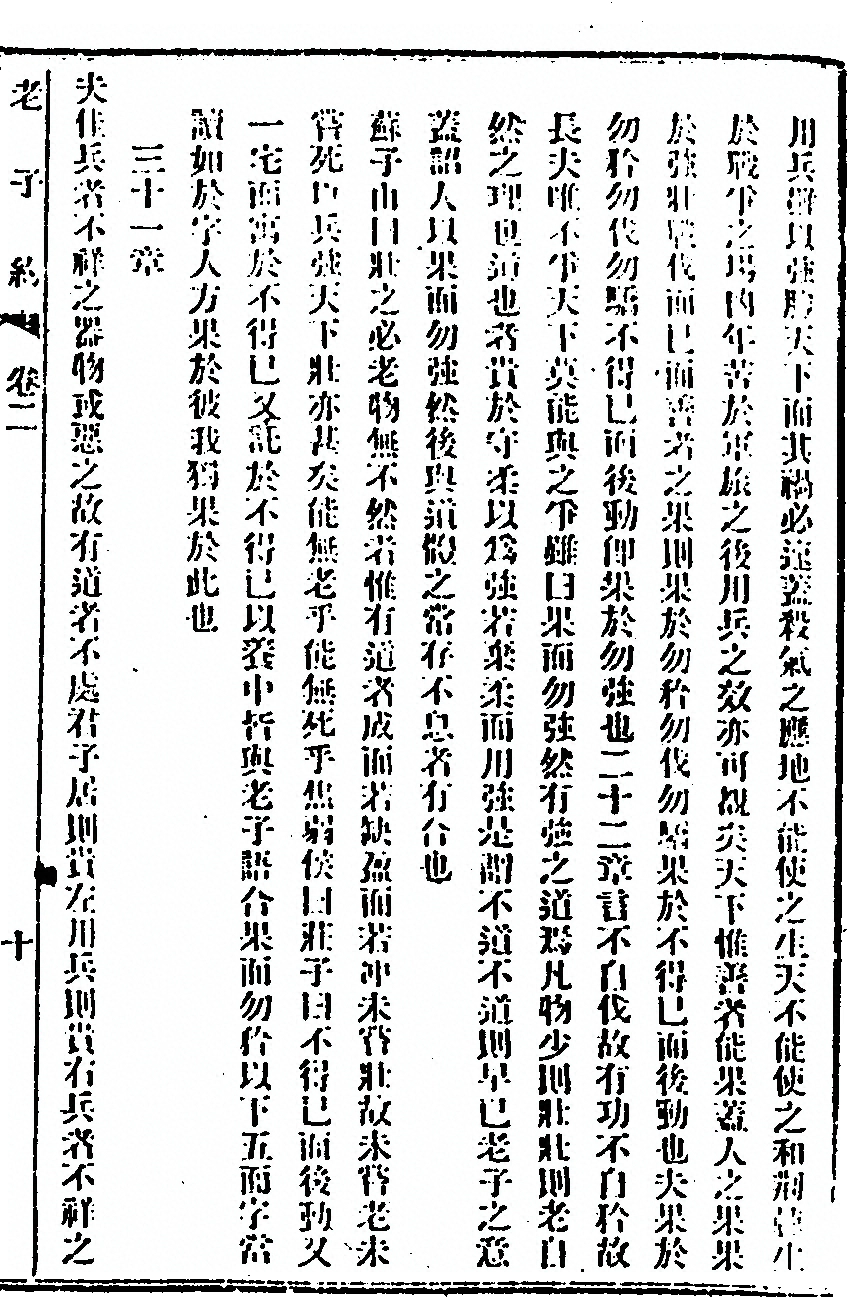 用兵雖以強勝天下而其禍必遠蓋殺氣之應地不能使之生天不能使之和荊棘生
於戰爭之場凶年苦於軍旅之後用兵之效亦可覩矣天下惟善者能果蓋人之果果
於強壯矜伐而已而善者之果則果於勿矜勿伐勿驕果於不得已而後動也夫果於
勿矜勿伐勿驕不得已而後動即果於勿強也二十二章言不自伐故有功不自矜故
長夫唯不爭天下莫能與之爭雖曰果而勿強然有強之道焉凡物少則壯壯則老自
然之理也道也者貴於守柔以為強若棄柔而用強是謂不道不道則早已老子之意
蓋詔人以果而勿強然後與道之常存不息者有合也
蘇子由曰壯之必老物無不然者惟有道者成而若缺盈而若沖未嘗壯故未嘗老未
嘗死以兵強天下壯亦甚矣能無老乎能無死乎焦弱侯曰莊子曰不得已而後動又
一宅而寓於不得已又託於不得已以養中皆與老子語合果而勿矜以下五而字當
讀如於字人方果於彼我獨果於此也
三十一章
夫佳兵者不祥之器物或惡之故有道者不處君子居則貴左用兵則貴右兵者不祥之
老子約 卷二 十